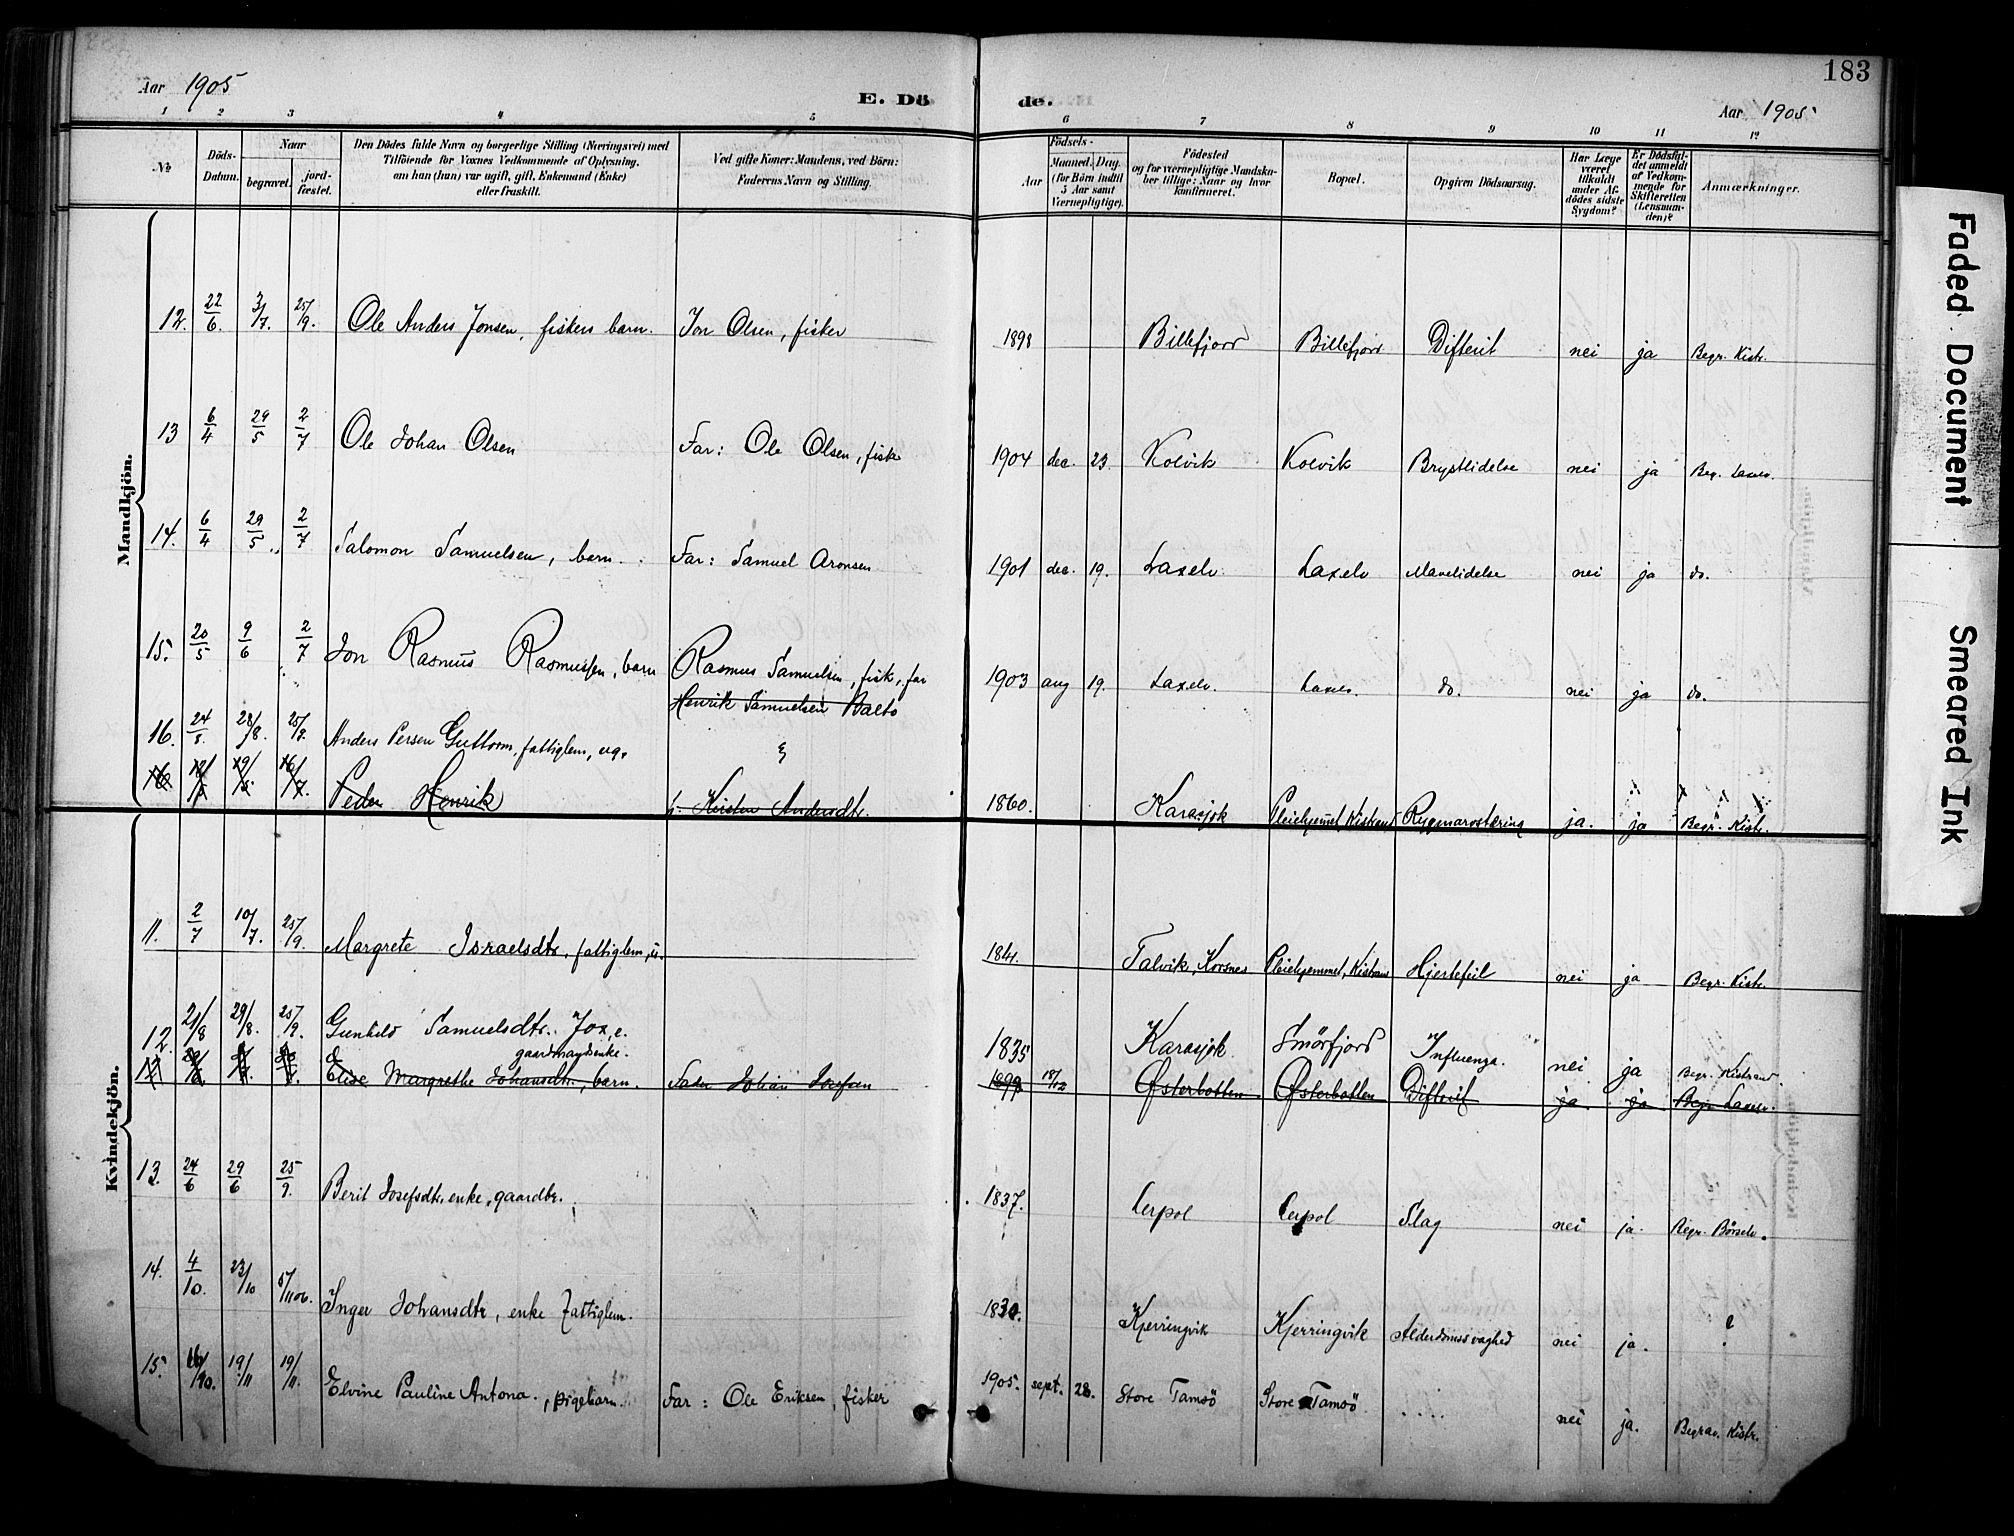 183
Aar 1905
E. Dö
de.
Aar 1905
1 2 3 4 5 6 7 8 9 10 11 12
№
Döds-Datum.
Naar
begravet.
jord-fæstet.
Den Dödes fulde Navn og borgerlige Stilling (Næringsvei) med
Tilföiende for Voxnes Vedkommende af Oplysning,
om han (hun) var ugift, gift, Enkemand (Enke)
eller fraskilt.
Ved gifte Koner: Mandens, ved Börn:
Faderens Navn og Stilling.
Födsels-
Aar
Maaned. Dag.
(for Börn indtil
5 Aar samt
Værnepligtige).
Födested
og for værnepligtige Mandska-
ber tillige: Naar og hvor
konfirmeret.
Bopæl.
Opgiven Dödsaarsag.
Har Læge
været
tilkaldt
under Af-
dödes sidste
Sygdom?
Er Dödsfal-
det anmeldt
af Vedkom-
mende for
Skifteretten
(Lensman-
den)?
Anmærkninger.
Mandkjön.
12. 22/6. 3/7. 25/9. Ole Anders Jonsen, fiskers barn. Jon Olsen, fisker 1898 Billefjord Billefjord Difterit nei ja Begr. Kistr.
13 6/4 29/5 2/7 Ole Johan Olsen Far: Ole Olsen, fisk 1904 dec. 23. Kolvik Kolvik Brystlidelse nei ja Beg. Laxelv.
14. 6/4 29/5 2/7 Salomon Samuelsen, barn. Far: Samuel Aronsen 1901 dec. 19. Laxelv. Laxelv Mavelidelse nei ja do.
15. 20/5 9/6 2/7 Jon Rasmus Rasmussen, barn Rasmus Samuelsen, fisk., far 1903 aug 19. Laxelv. Laxelv. do. nei ja do.
Henrik Samuelsen Balto
16. 24/8. 28/8. 25/9. Anders Persen Guttorm, fattiglem, ug.
16 Peder Henrik h. Kirsten Andersdtr. 1860. Karasjok Pleiehjemmet, Kistrand Rygmarvstæring ja. ja Begr. Kistr.
Kvindekjön.
11. 2/7 10/7. 25/9. Margrete Israelsdtr., fattiglem, u. 1841. Talvik, Korsnes Pleiehjemmet, Kistrand Hjertefeil nei ja Begr. Kistr.
12. 21/8 29/8. 25/9. Gunhild Samuelsdtr. Jox, e. 1835 Karasjok Smörfjord Influenza. nei ja Begr. Kistrand.
gaardmandsenke.
Elise Margrethe Johansdtr., barn. Fader Johan Josefsen 1899 15/12 Østerbotten Østerbotten Difterit ja ja Begr. Laxelv.
13. 24/6 29/6 25/9. Berit Josefsdtr. enke, gaardbr. 1837. Lerpol Lerpol Slag nei ja. Begr. Börselv.
14. 4/10. 23/10 5/11 06. Inger Johansdtr, enke fattiglem. Kjerringvik Kjerringvik Alderdomssvaghed nei ja. ?
15. 16/10. 19/11 19/11. Elvine Pauline Antona., pigebarn. Far: Ole Eriksen, fisker 1905. sept. 28. Store Tamsö Store Tamsö ..... nei ja. Begrav. Kistr.
Faded Document
Smeared Ink